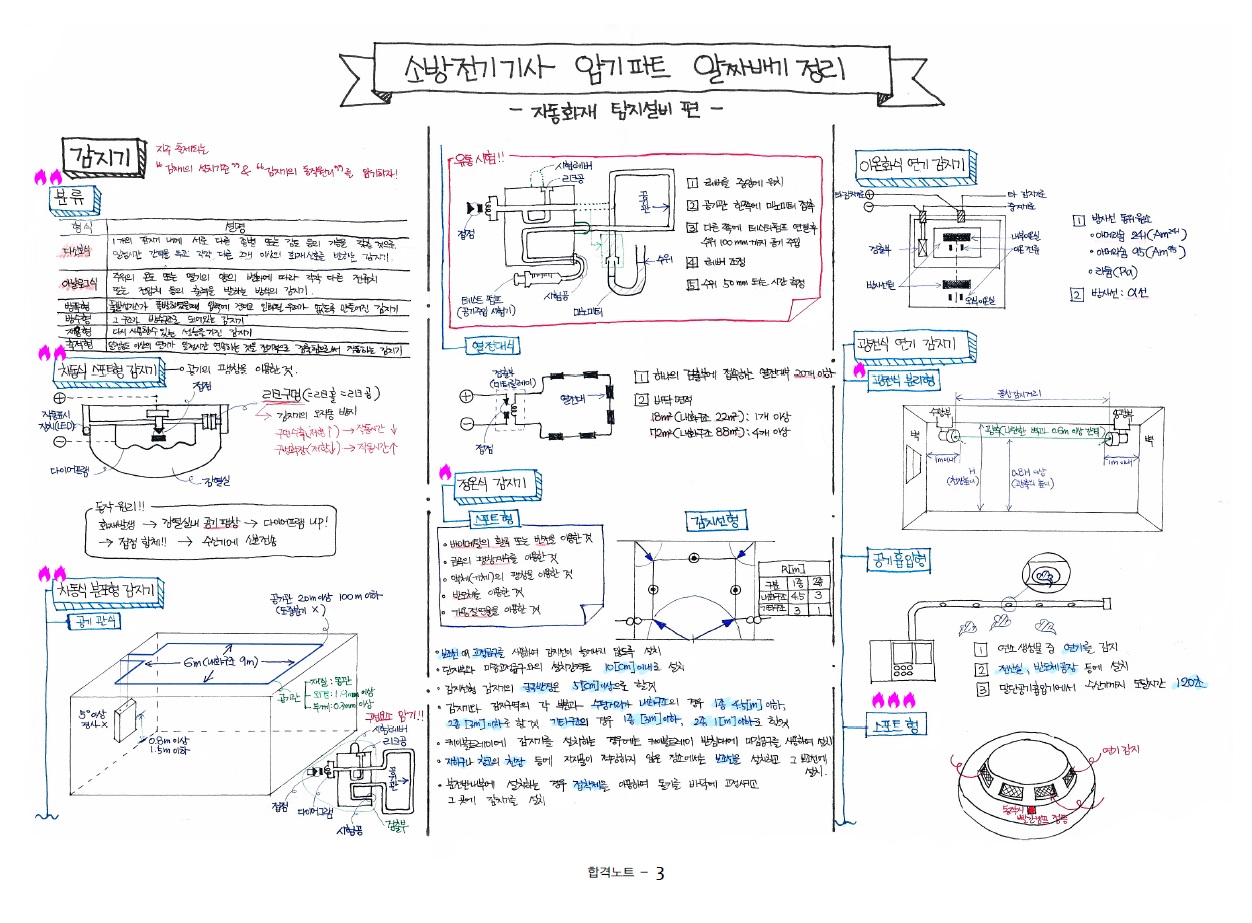 소방전기기사 암기파트 알짜배기 정리
- 자동화재 탐지설비 편 -
감지기
자주 출제되는
"감지기의 설치기준" & "감지기의 동작원리"를 암기하자!
분류
형식 설명
다신호식
1개의 감지기 내에 서로 다른 종별 또는 감도 등의 기능을 갖춘 것으로
일정시간 간격을 두고 각각 다른 2개 이상의 화재신호를 발하는 감지기
아날로그식
주위의 온도 또는 연기의 양의 변화에 따라 각각 다른 전류치
또는 전압치 등의 출력을 발하는 방식의 감지기
방폭형
방수형 그 구조가 방수구조로 되어있는 감지기
재용형 다시 사용할 수 있는 성능을 가진 감지기
축적형 일정농도 이상의 연기가 일정시간 연속하는 것을 전기적으로 검출함으로써 작동하는 감지기
차동식 스포트형 감지기
공기의 팽창을 이용한 것.
접점
작동표시
장치(LED)
리크구멍(=리크홀=리크공)
감지기의 오작동 방지
→ 작동시간 ↓
→ 작동시간 ↑
다이어프램
감열실
동작원리!!
화재발생 → 감열실내 공기팽창 → 다이어프램 UP!
→ 접점 합체!! → 수신기에 신호전송
차동식 분포형 감지기
공기관식
공기관 20m이상 100m이하
(도중분기 X)
6m(내화구조 9m)
공기관
재질: 동관
외경: 1.9mm이상
두께: 0.3mm이상
5°이상
경사 X
0.8m이상
1.5m이하
구성요소 암기!!
시험레버
리크공
공기관
접점
다이어프램
시험공
검출부
유통시험!!
시험레버
리크공
공기관
접점
수위
테스트 펌프
(공기주입 시험기)
시험공
마노미터
1 레버를 중앙에 위치
2 공기관 한쪽에 마노미터 접속
3 다른 한쪽에 테스트펌프 연결후
수위 100mm까지 공기 주입
4 레버 조정
5 수위 50mm 되는 시간 측정
열전대식
검출부
(미터릴레이)
열전대
접점
1 하나의 검출부에 접속하는 열전대 20개 이하
2 바닥 면적
18m²(내화구조 22m²): 1개 이상
72m²(내화구조 88m²): 4개 이상
정온식 감지기
스포트형
• 바이메탈의 활곡 또는 반전을 이용한 것
• 금속의 팽창계수를 이용한 것
• 액체(기체)의 팽창을 이용한 것
• 반도체를 이용한 것
• 가용절연물을 이용한 것
감지선형
R[m]
구분 1종 2종
내화구조 4.5 3
기타구조 3 1
• 보조선이나 고정금구를 사용하여 감지선이 늘어나지 않도록 설치
• 단자부와 마감고정금구와의 설치간격은 10[cm]이내로 설치
• 감지선형 감지기의 굴곡반경은 5[cm]이상으로 할것
• 감지기와 감지구역의 각 부분과 수평거리가 내화구조의 경우 1종 4.5[m]이하,
2종 [3m]이하로 할것 기타구조의 경우 1종 [3m]이하, 2종 1[m]이하로 할것
• 케이블트레이에 감지기를 설치하는 경우에는 케이블트레이 받침대에 마감금구를 사용하여 설치
• 지하구나 창고의 천장 등에 지지물이 적당하지 않은 장소에서는 보조선을 설치하고 그 보조선에
설치.
• 분전반내부에 설치하는 경우 접착제를 이용하여 돌기를 바닥에 고정시키고
그 곳에 감지기를 설치
이온화식 연기 감지기
타 감지기로
타 감지기로
중계기로
검출부
내부이온실
이온전류
방사선원
외부이온실
1 방사선 동위원소
• 아메리슘 241(Am²⁴¹)
• 아메리슘 95(Am⁹⁵)
• 라듐(Ra)
2 방사선: α선
광전식 연기 감지기
광전식 분리형
공칭감지거리
수광부
송광부
벽
광축(나란한 벽과 0.6m 이상 간격)
벽
1m이내
1m이내
H
(천장높이)
0.8H 이상
(광축의 높이)
공기흡입형
1 연소 생성물 중 연기를 감지
2 전산실, 반도체공장 등에 설치
3 말단공기흡입기에서 수신기까지 도달시간 120초
스포트형
연기 감지
동작시
빨간램프 점등
합격노트 - 3